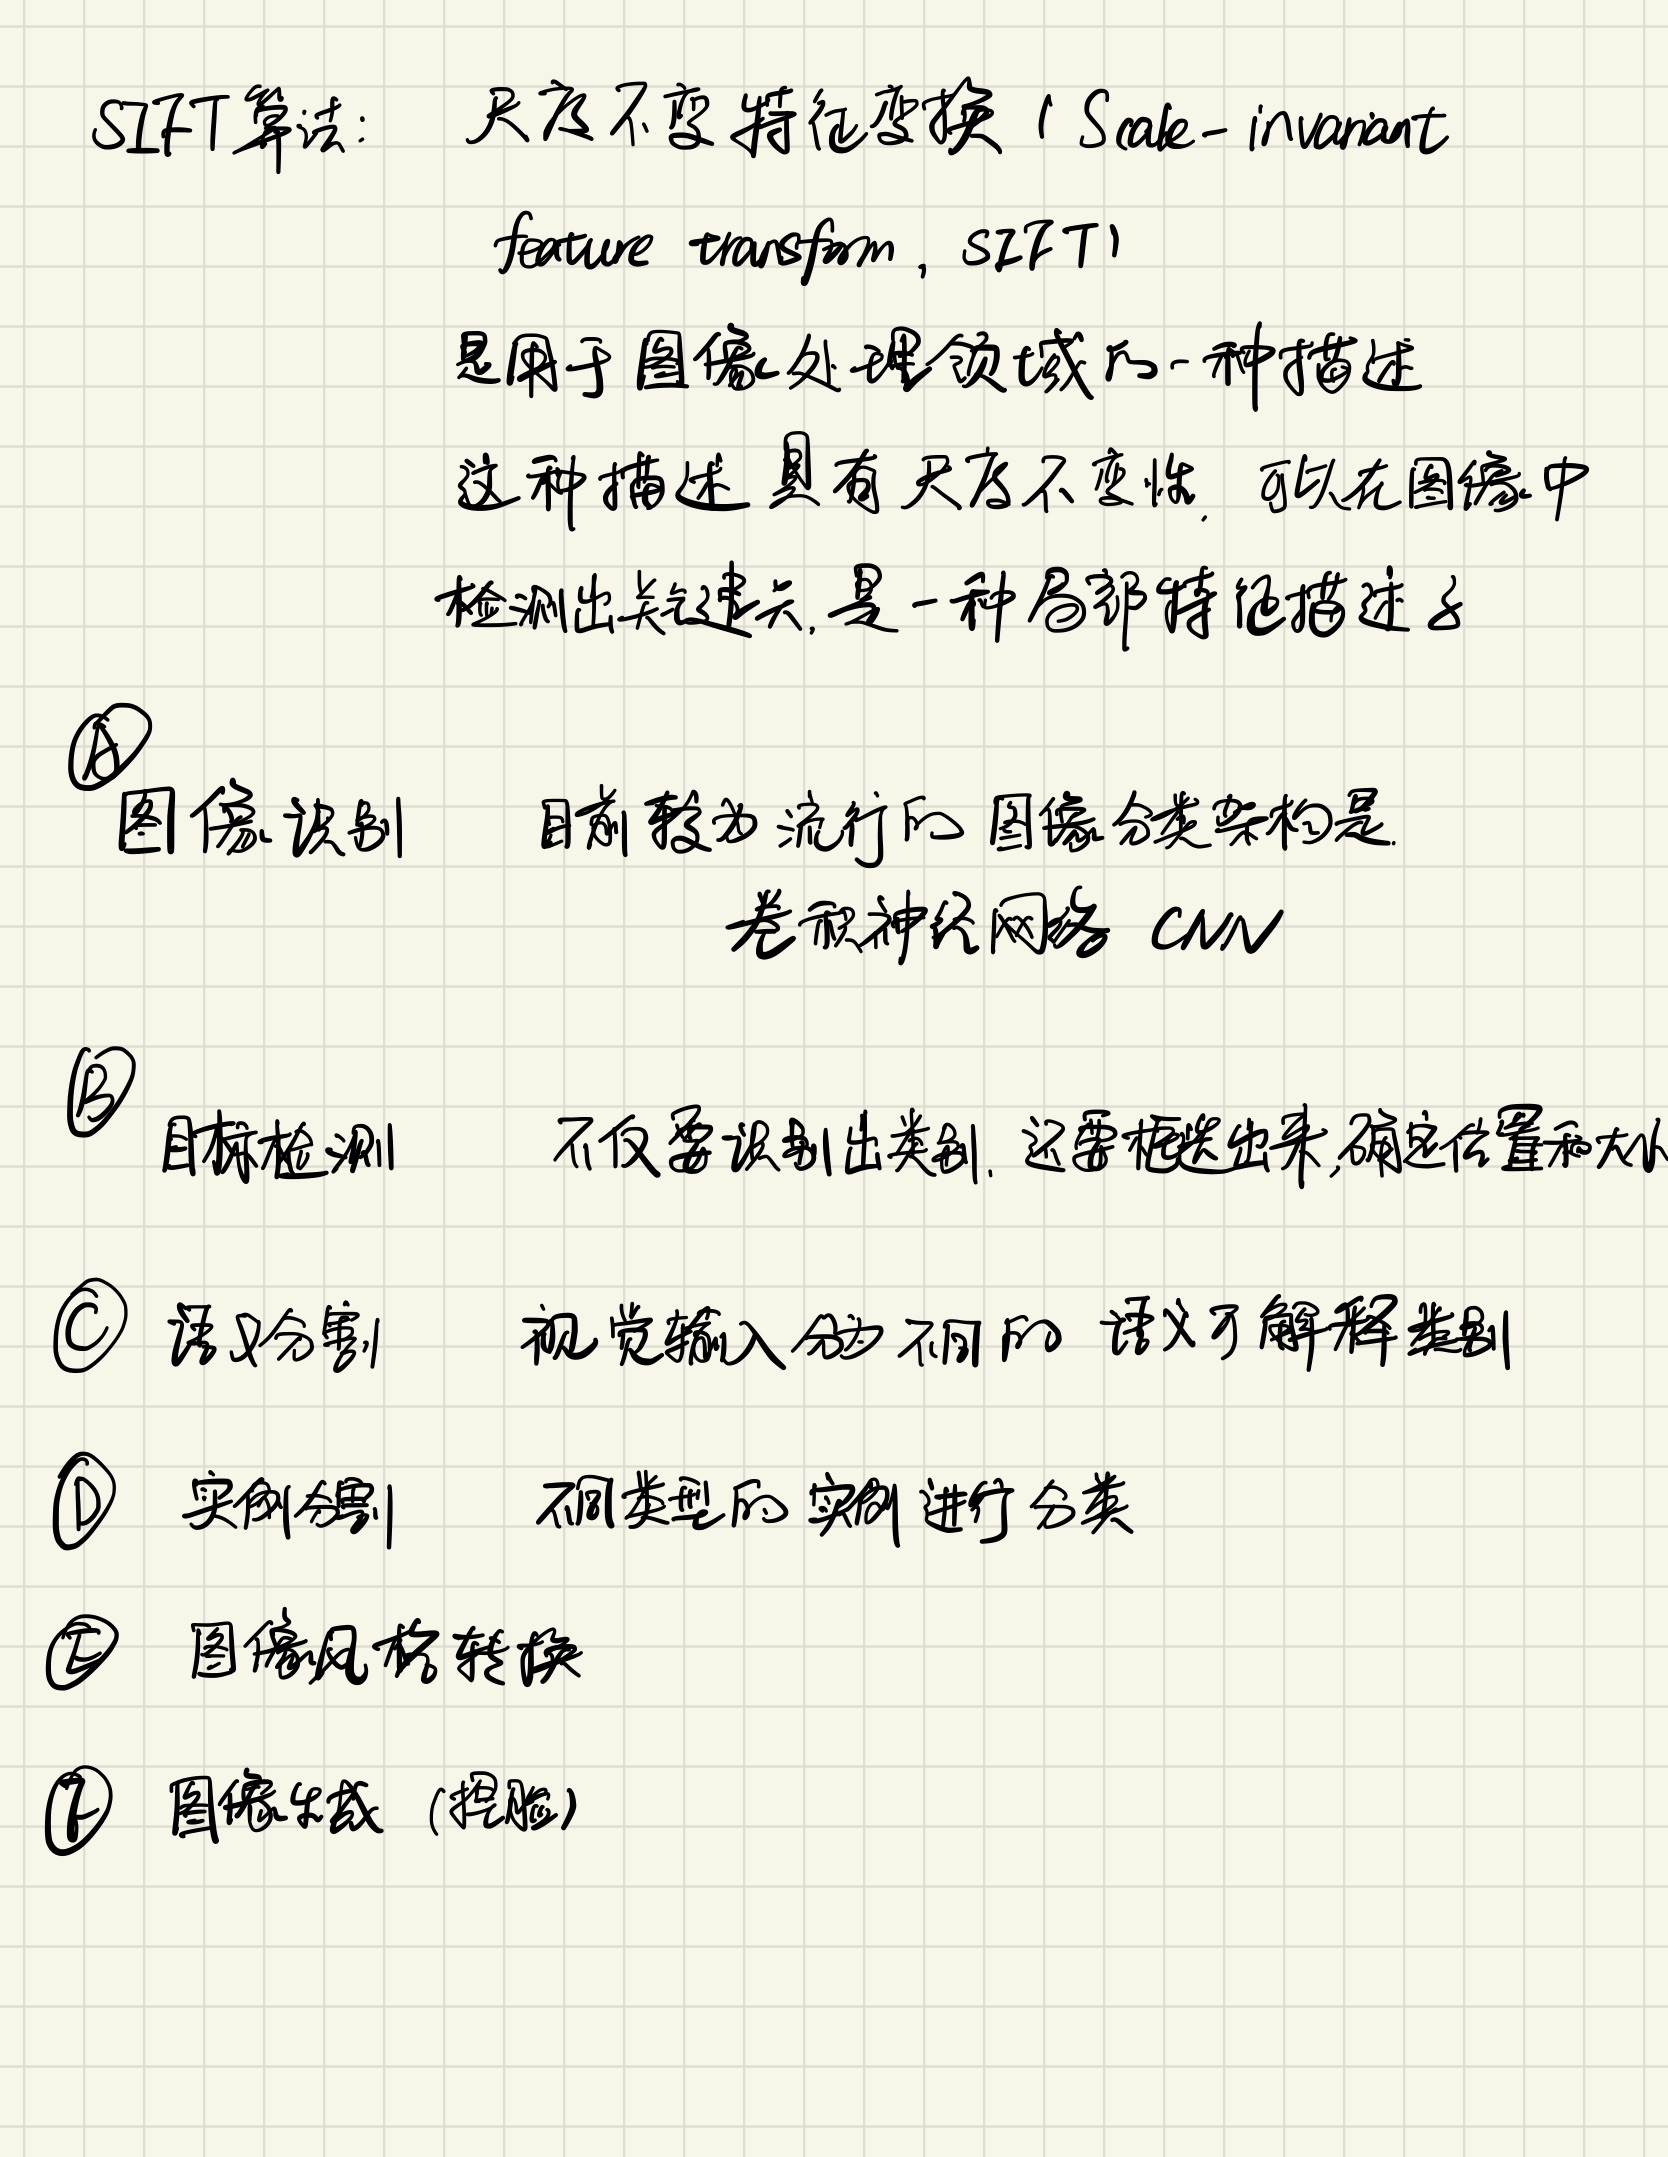 SIFT算法: 尺度不变特征变换 (Scale-invariant
feature transform, SIFT)
是用于图像处理领域的一种描述
这种描述具有尺度不变性, 可以在图像中
检测出关键点, 是一种局部特征描述子
Ⓐ
图像识别 目前较为流行的图像分类架构是
卷积神经网络 CNN
Ⓑ
目标检测 不仅要识别出类别, 还要框选出来, 确定位置和大小
Ⓒ 语义分割 视觉输入分为不同的语义可解释类别
Ⓓ 实例分割 不同类型的实例进行分类
Ⓔ 图像风格转换
Ⓕ 图像生成 (捏脸)